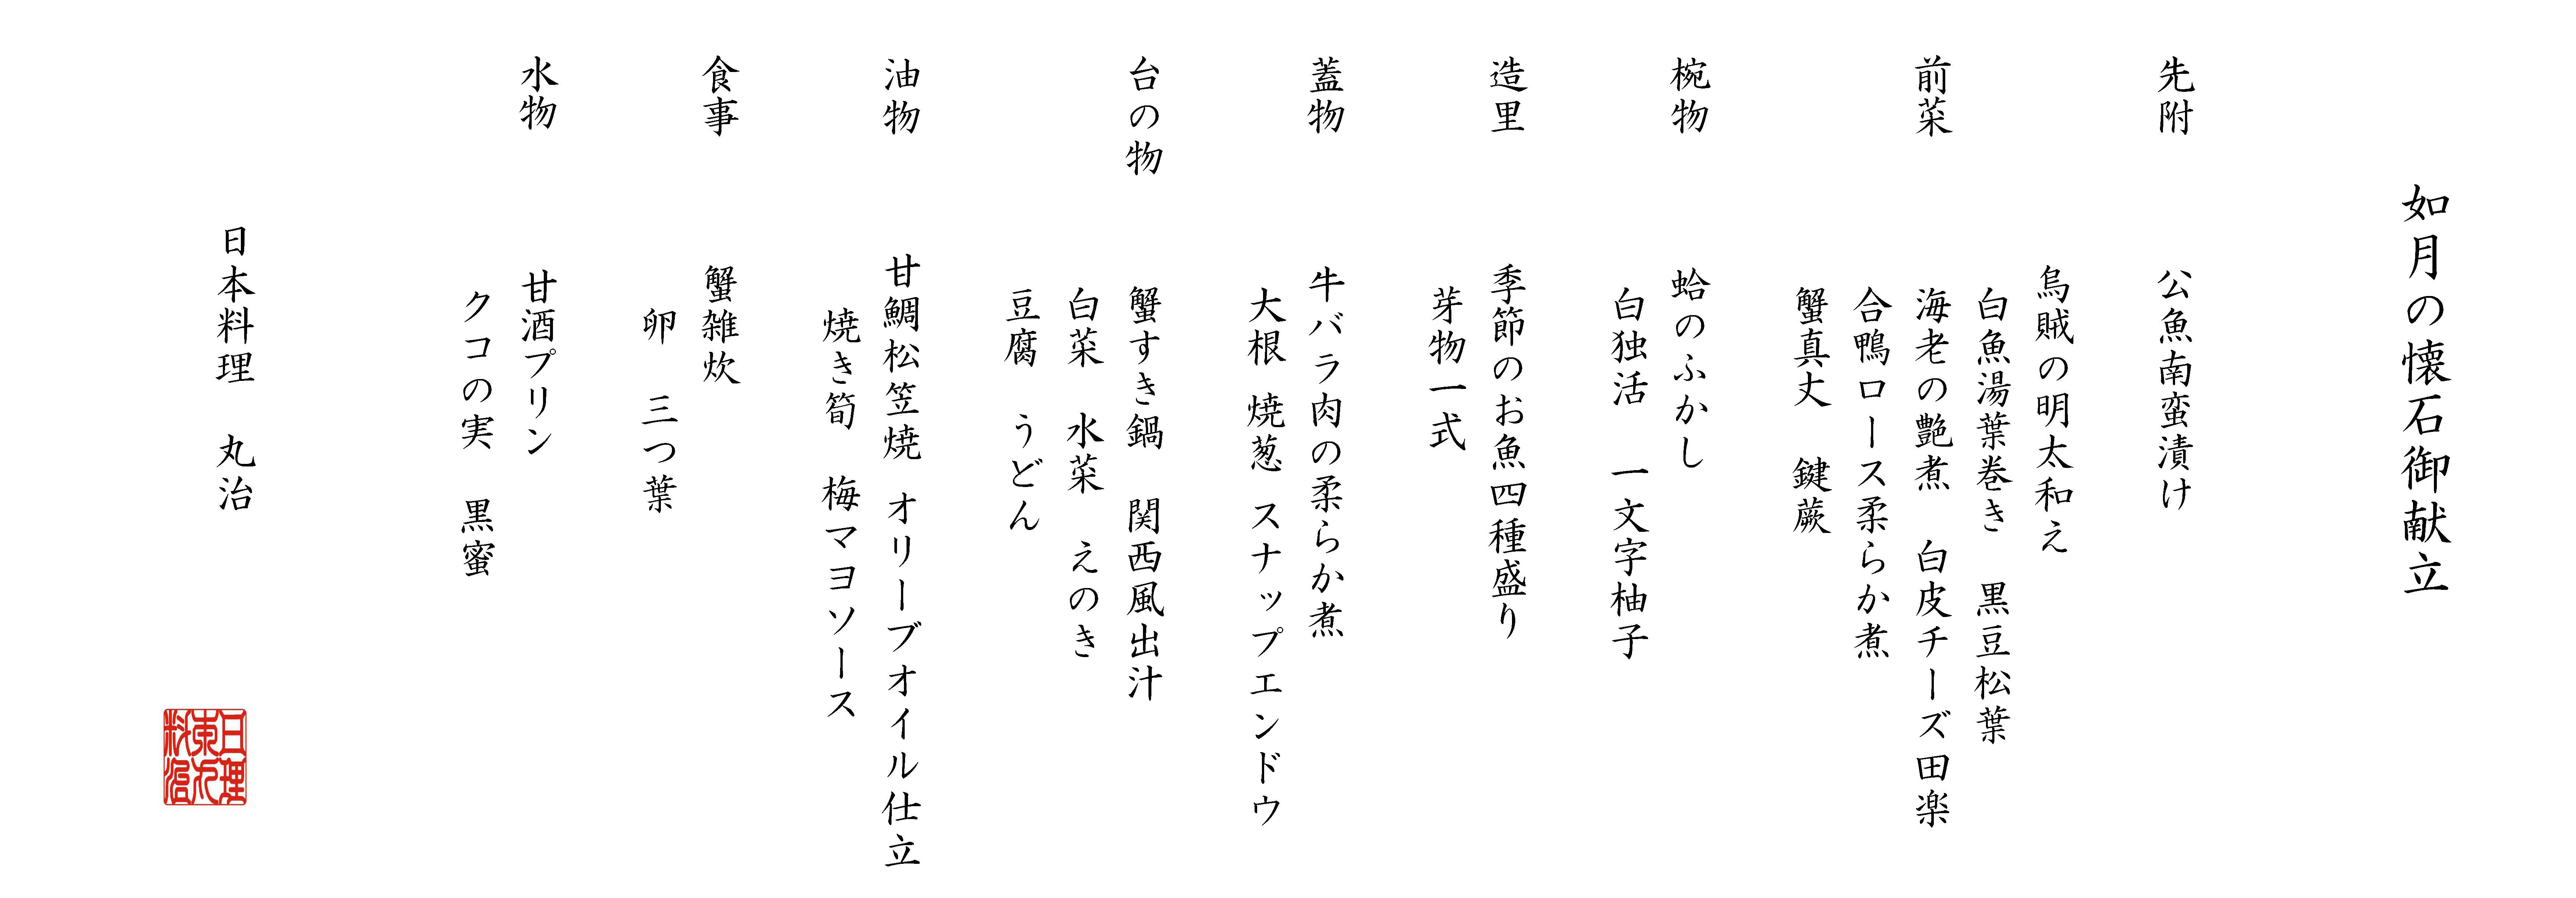 如月の懐石御献立
先附　公魚南蛮漬け
烏賊の明太和え
白魚湯葉巻き　黒豆松葉
前菜　海老の艶煮　白皮チーズ田楽
合鴨ロース柔らか煮
蟹真丈　鍵蕨
椀物　蛤のふかし
白独活　一文字柚子
造里　季節のお魚四種盛り
芽物一式
蓋物　牛バラ肉の柔らか煮
大根　焼葱　スナップエンドウ
台の物　蟹すき鍋　関西風出汁
白菜　水菜　えのき
豆腐　うどん
油物　甘鯛松笠焼　オリーブオイル仕立
焼き筍　梅マヨソース
食事　蟹雑炊
卵　三つ葉
水物　甘酒プリン
クコの実　黒蜜
日本料理　丸治